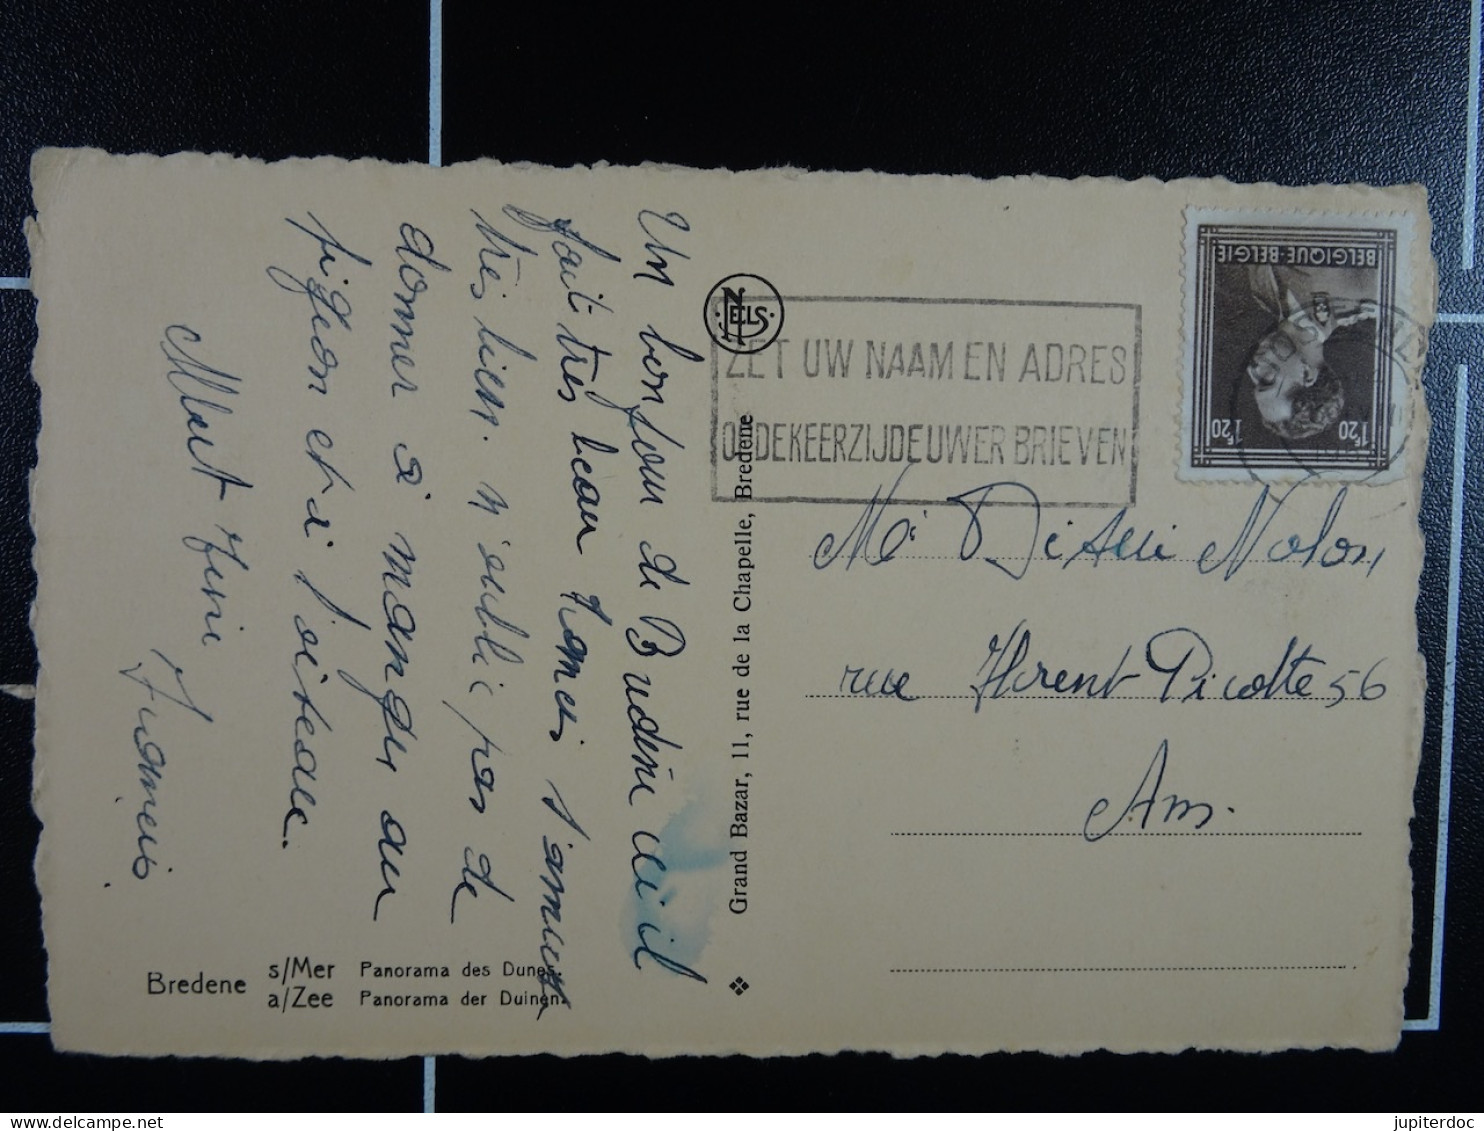 Un bonjour de Bredene ici il
fait très beau
très bien. n'oublie pas de
donner à manger au
pigeon et à l'oiseau.
Albert
Bredene s/Mer Panorama des Dunes.
a/Zee Panorama der Duinen.
NELS
Grand Bazar, 11, rue de la Chapelle, Bredene
ZET UW NAAM EN ADRES
OP DE KEERZIJDE UWER BRIEVEN
BELGIQUE-BELGIE
1F20 1F20
rue Florent Picotte 56
Ans.
jupiterdoc
www.delcampe.net